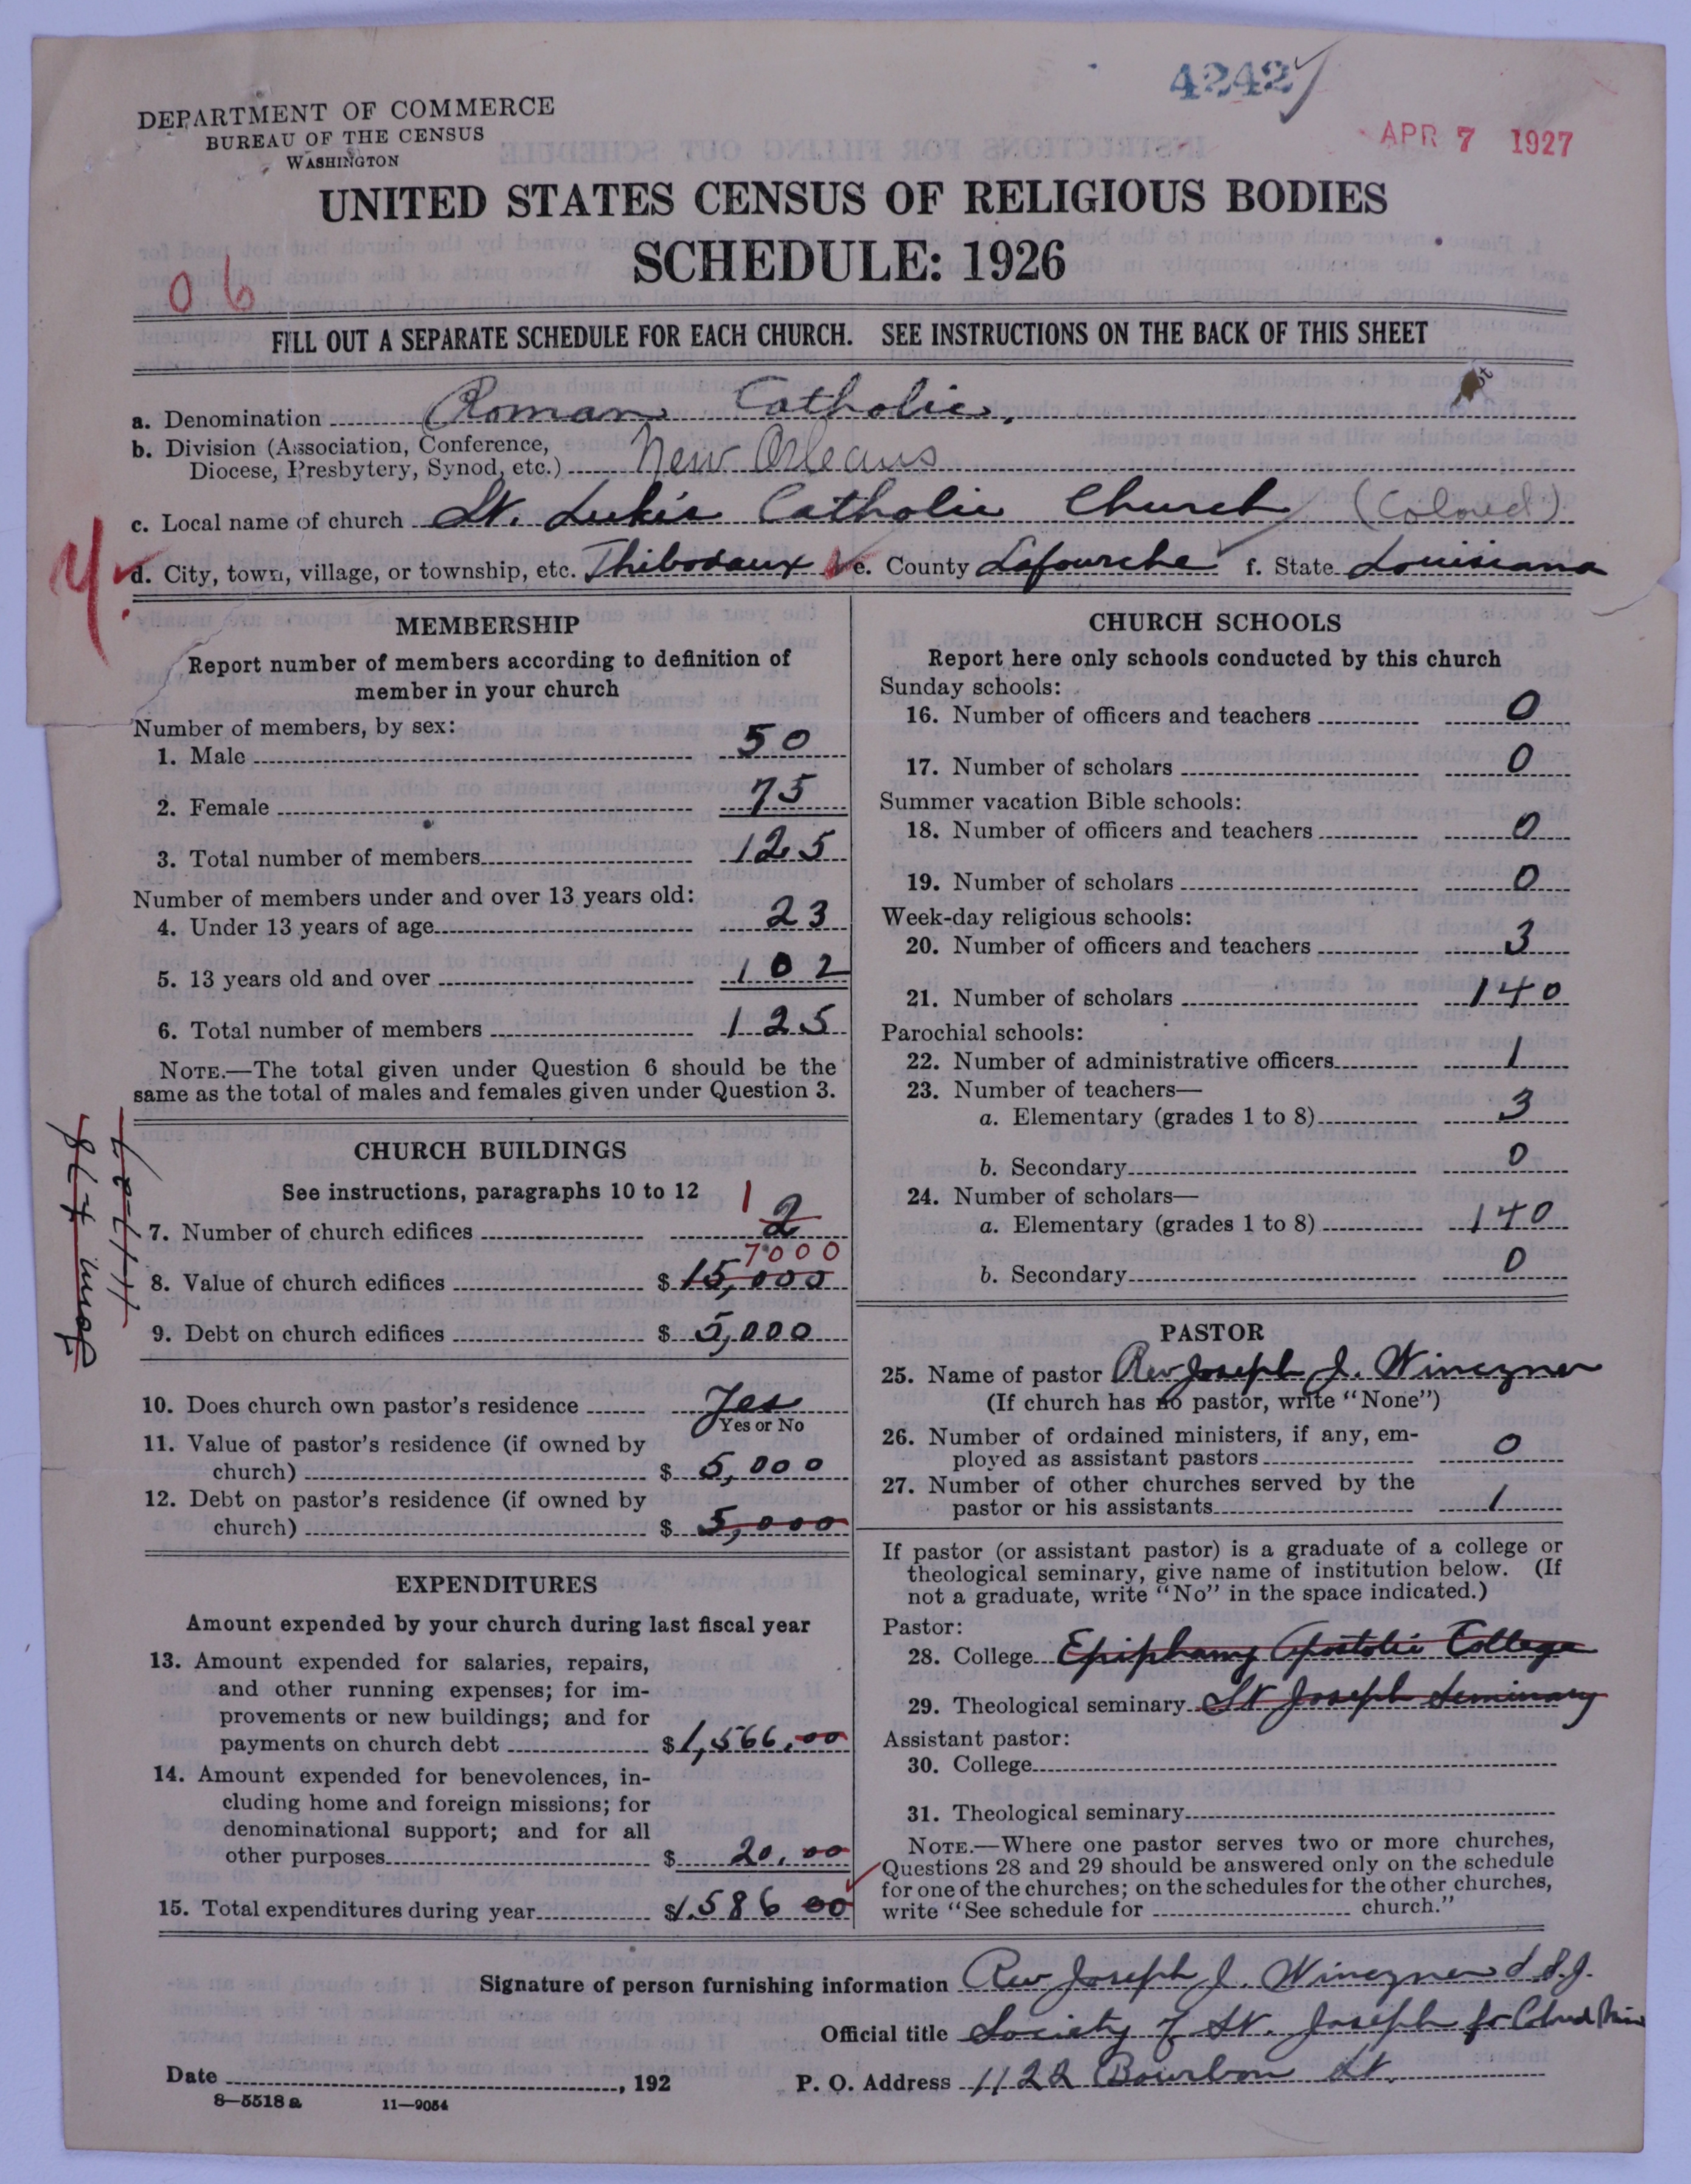 42427
DEPARTMENT OF COMMERCE
BUREAU OF THE CENSUS
WASHINGTON
APR 7 1927
UNITED STATES CENSUS OF RELIGIOUS BODIES
SCHEDULE: 1926
06
FILL OUT A SEPARATE SCHEDULE FOR EACH CHURCH. SEE INSTRUCTIONS ON THE BACK OF THIS SHEET
a. Denomination Roman Catholic.
b. Division (Association, Conference,
Diocese, Presbytery, Synod, etc.) New Orleans
c. Local name of church St. Luke's Catholic Church (Colored)
d. City, town, village, or township, etc. Thibodaux e. County Lafourche f. State Louisiana
MEMBERSHIP
Report number of members according to definition of
member in your church
Number of members, by sex:
1. Male 50
2. Female 75
3. Total number of members 125
Number of members under and over 13 years old:
4. Under 13 years of age 23
5. 13 years old and over 102
6. Total number of members 125
NOTE.—The total given under Question 6 should be the
same as the total of males and females given under Question 3.
CHURCH BUILDINGS
See instructions, paragraphs 10 to 12
7. Number of church edifices 1 2
7000
8. Value of church edifices $ 15,000
9. Debt on church edifices $ 5,000
10. Does church own pastor's residence Yes
Yes or No
11. Value of pastor's residence (if owned by
church) $ 5,000
12. Debt on pastor's residence (if owned by
church) $ 5,000
EXPENDITURES
Amount expended by your church during last fiscal year
13. Amount expended for salaries, repairs,
and other running expenses; for im-
provements or new buildings; and for
payments on church debt $1,566.00
14. Amount expended for benevolences, in-
cluding home and foreign missions; for
denominational support; and for all
other purposes $ 20.00
15. Total expenditures during year $1.586 00
CHURCH SCHOOLS
Report here only schools conducted by this church
Sunday schools:
16. Number of officers and teachers 0
17. Number of scholars 0
Summer vacation Bible schools:
18. Number of officers and teachers 0
19. Number of scholars 0
Week-day religious schools:
20. Number of officers and teachers 3
21. Number of scholars 140
Parochial schools:
22. Number of administrative officers 1
23. Number of teachers—
a. Elementary (grades 1 to 8) 3
b. Secondary 0
24. Number of scholars—
a. Elementary (grades 1 to 8) 140
b. Secondary 0
PASTOR
25. Name of pastor Rev Joseph J. Winczner
(If church has no pastor, write "None")
26. Number of ordained ministers, if any, em-
ployed as assistant pastors 0
27. Number of other churches served by the
pastor or his assistants 1
If pastor (or assistant pastor) is a graduate of a college or
theological seminary, give name of institution below. (If
not a graduate, write "No" in the space indicated.)
Pastor:
28. College Epiphany Apostolic College
29. Theological seminary St Joseph Seminary
Assistant pastor:
30. College
31. Theological seminary
NOTE.—Where one pastor serves two or more churches,
Questions 28 and 29 should be answered only on the schedule
for one of the churches; on the schedules for the other churches,
write "See schedule for church."
Signature of person furnishing information Rev Joseph J. Winczner S.S.J.
Official title Society of St. Joseph for Colored
Date , 192
P. O. Address 1122 Bourbon St.
8—5518 a 11—9054